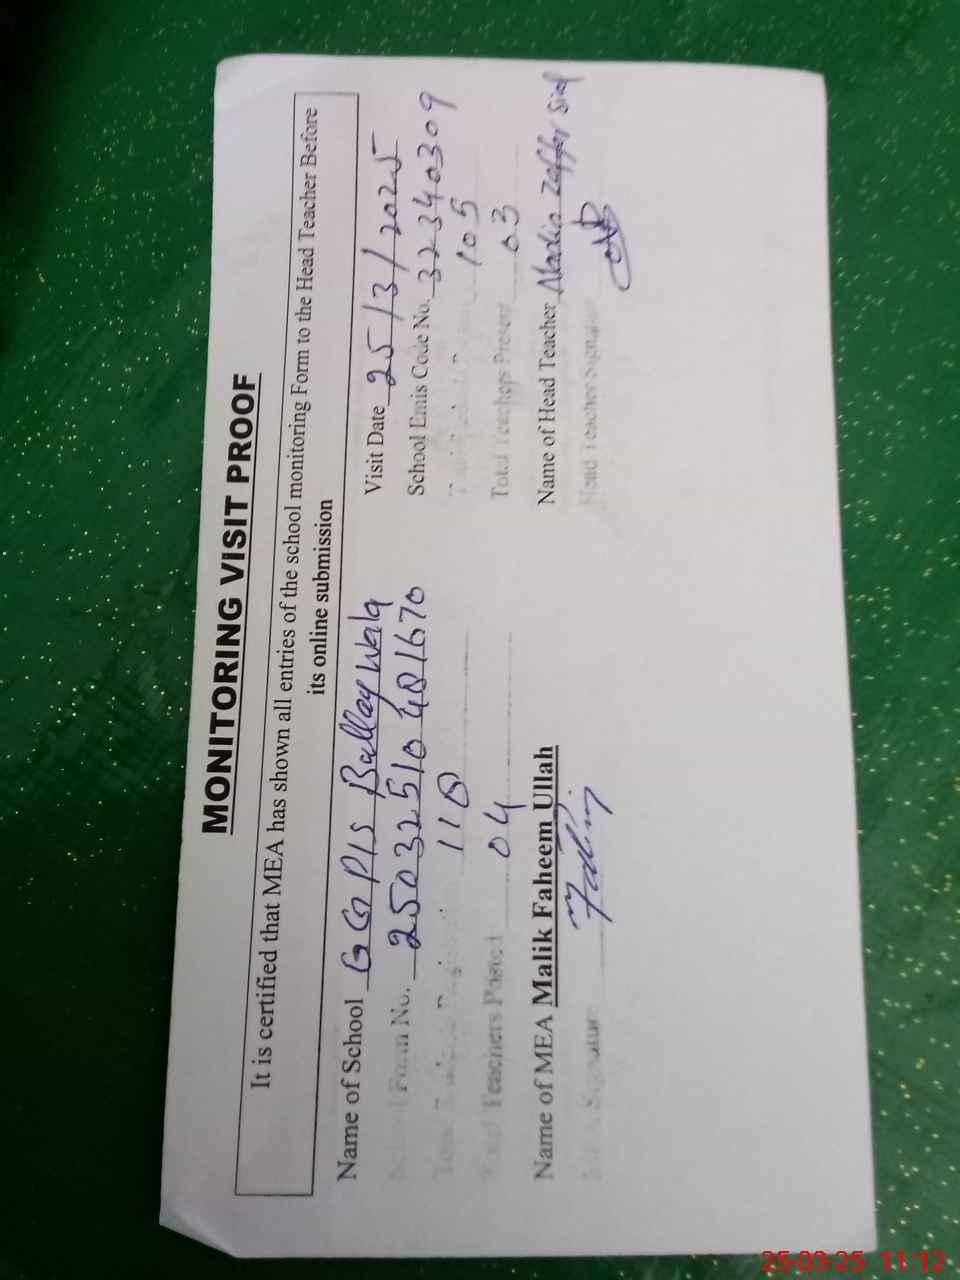 MONITORING VISIT PROOF
It is certified that MEA has shown all entries of the school monitoring Form to the Head Teacher Before
its online submission
Name of School GGP/S Ballay Wala Visit Date 25/3/2025
Form No. 25032510481670 School Emis Code No. 32340309
Total 118 105
Total Teachers Posted 04 Total Teachers Present 03
Name of MEA Malik Faheem Ullah Name of Head Teacher Nadia Zaffar
MEA Signature Head Teacher Signature
25-03-25 11:12